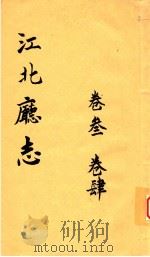 江北廳志
卷叁 卷肆
www.shukui.net